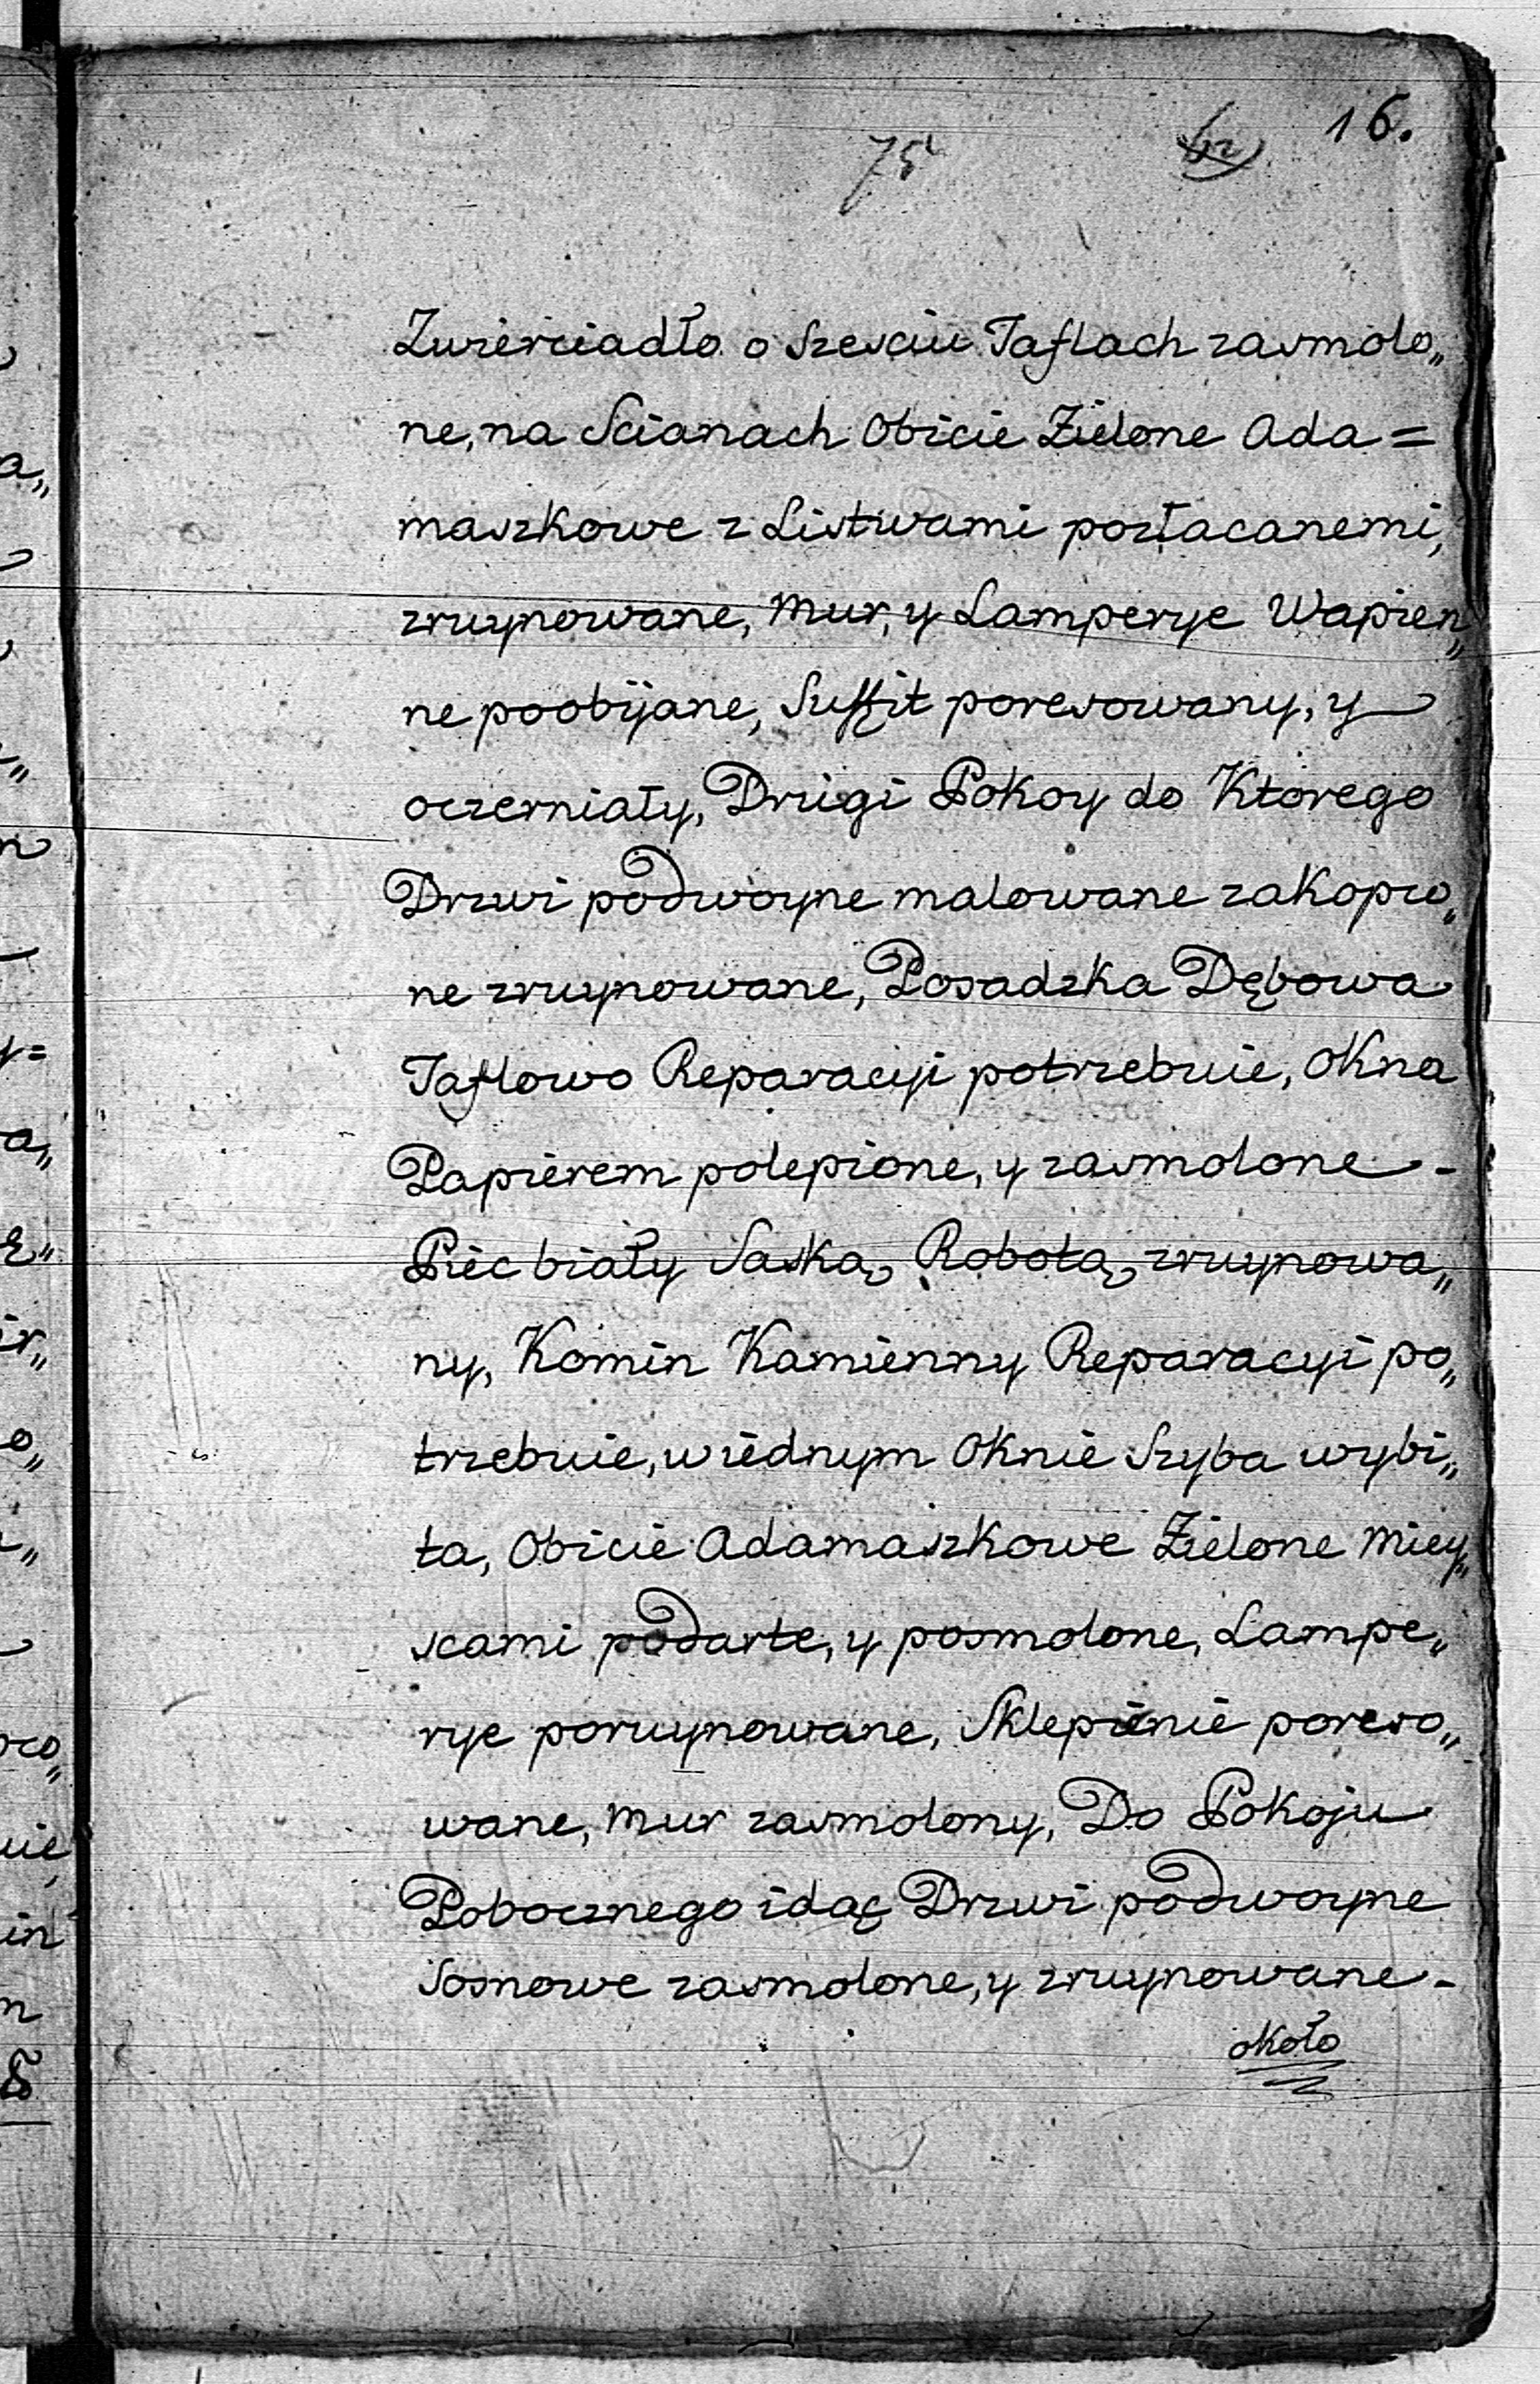 16.
75
Zwierciadło o Szesciu Taflach zasmolo„
ne, na Scianach Obicie Zielone Ada=
maszkowe z Listwami pozłacanemi,
zruynowane, Mur, y Lamperye Wapien„
ne poobijane, Suffit poresowany, y
oczerniały, Drugi Pokoy do Ktorego
Drzwi podwoyne malowane zakopco„
ne zruynowane, Posadzka Dębowa
Taflowo Reparacyi potrzebuie, Okna
Papierem polepione, y zasmolone -
Piec biały Saską Robotą zruynowa„
ny, Komin Kamienny Reparacyi po„
trzebuie, w iednym Oknie Szyba wybi„
ta, Obicie Adamaszkowe Zielone Miey„
scami podarte, y posmolone, Lampe„
rye poruynowane, Sklepienie poreso„
wane, Mur zasmolony, Do Pokoju
Pobocznego idąc Drzwi podwoyne
Sosnowe zasmolone, y zruynowane -
około